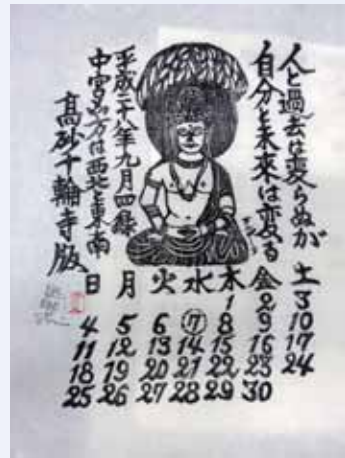 人と過去は変らぬが
自分と未来は変る
平成二十八年九月四緑
中宮 万は西北と東南
高砂千輪寺版
日 月 火 水 木 金 土
1 2 3
4 5 6 7 8 9 10
11 12 13 14 15 16 17
18 19 20 21 22 23 24
25 26 27 28 29 30